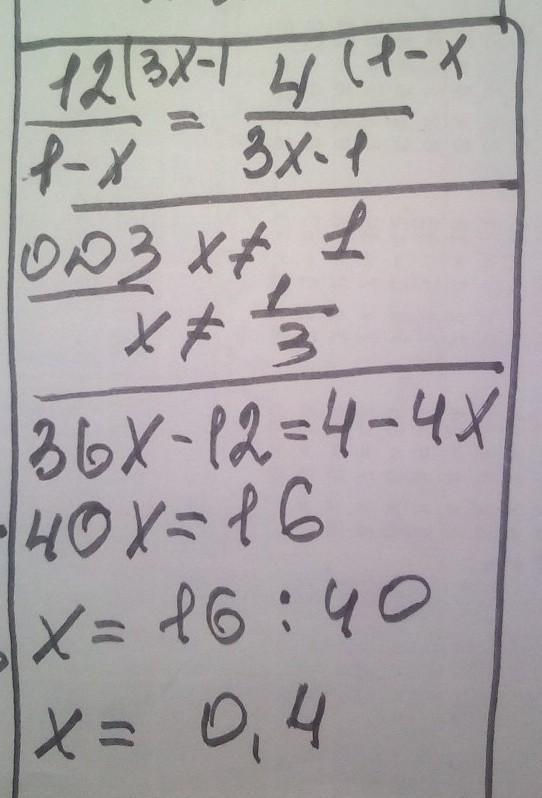 12(3x-1 4(1-x
— = —
1-x 3x-1
ОДЗ x≠ 1
x≠ 1/3
36x-12=4-4x
40x=16
x= 16:40
x= 0,4